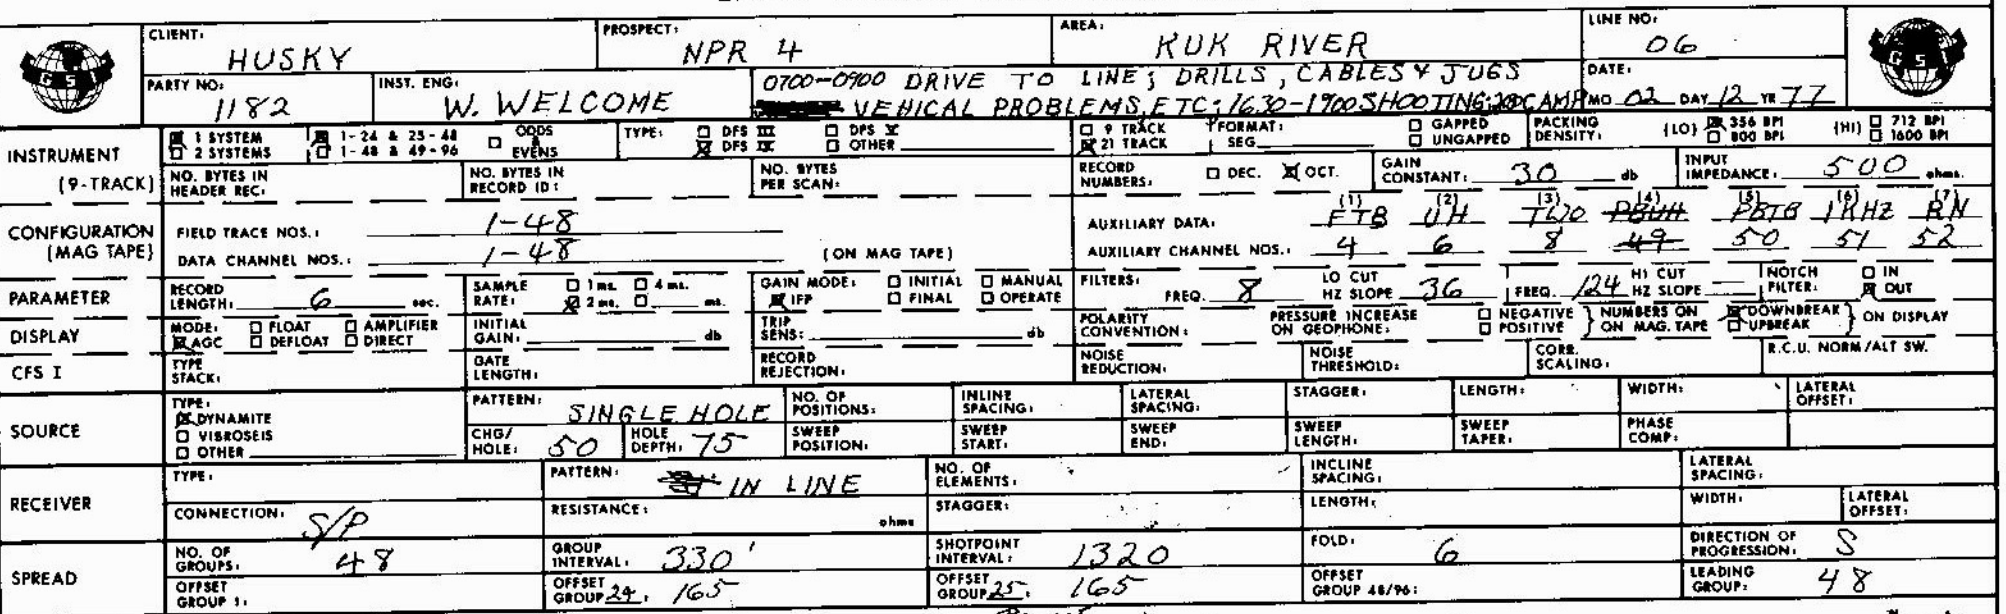 CLIENT: HUSKY PROSPECT: NPR 4 AREA: KUK RIVER LINE NO: 06
GSI GSI
PARTY NO: 1182 INST. ENG: W. WELCOME 0700-0900 DRIVE TO LINE; DRILLS, CABLES & JUGS
VEHICAL PROBLEMS, ETC; 1630-1900 SHOOTING; CAMP DATE: MO 02 DAY 12 YR 77
INSTRUMENT (9-TRACK)
1 SYSTEM 1-24 & 25-48 ODDS & EVENS TYPE: DFS III DFS V 9 TRACK FORMAT: GAPPED PACKING DENSITY: (LO) 356 BPI (HI) 712 BPI
2 SYSTEMS 1-48 & 49-96 DFS IV OTHER 21 TRACK SEG. UNGAPPED 800 BPI 1600 BPI
NO. BYTES IN HEADER REC: NO. BYTES IN RECORD ID: NO. BYTES PER SCAN: RECORD NUMBERS: DEC. OCT. GAIN CONSTANT: 30 db INPUT IMPEDANCE: 500 ohms.
CONFIGURATION (MAG TAPE)
FIELD TRACE NOS.: 1-48 AUXILIARY DATA: (1) FTB (2) UH (3) TWO (4) PBUH (5) PBTB (6) 1KHZ (7) RN
DATA CHANNEL NOS.: 1-48 (ON MAG TAPE) AUXILIARY CHANNEL NOS.: 4 6 8 49 50 51 52
PARAMETER
RECORD LENGTH: 6 sec. SAMPLE RATE: 1 ms. 4 ms. 2 ms. ms. GAIN MODE: INITIAL MANUAL IFP FINAL OPERATE FILTERS: FREQ. 8 LO CUT HZ SLOPE 36 FREQ. 124 HI CUT HZ SLOPE NOTCH FILTER: IN OUT
DISPLAY
MODE: FLOAT AMPLIFIER AGC DEFLOAT DIRECT INITIAL GAIN: db TRIP SENS: db POLARITY CONVENTION: PRESSURE INCREASE ON GEOPHONE: NEGATIVE POSITIVE } NUMBERS ON ON MAG. TAPE DOWNBREAK UPBREAK } ON DISPLAY
CFS I
TYPE STACK: GATE LENGTH: RECORD REJECTION: NOISE REDUCTION: NOISE THRESHOLD: CORR. SCALING: R.C.U. NORM/ALT SW.
SOURCE
TYPE: DYNAMITE VIBROSEIS OTHER PATTERN: SINGLE HOLE NO. OF POSITIONS: INLINE SPACING: LATERAL SPACING: STAGGER: LENGTH: WIDTH: LATERAL OFFSET:
CHG/HOLE: 50 HOLE DEPTH: 75 SWEEP POSITION: SWEEP START: SWEEP END: SWEEP LENGTH: SWEEP TAPER: PHASE COMP:
RECEIVER
TYPE: PATTERN: IN LINE NO. OF ELEMENTS: INCLINE SPACING: LATERAL SPACING:
CONNECTION: S/P RESISTANCE: ohms STAGGER: LENGTH: WIDTH: LATERAL OFFSET:
SPREAD
NO. OF GROUPS: 48 GROUP INTERVAL: 330' SHOTPOINT INTERVAL: 1320 FOLD: 6 DIRECTION OF PROGRESSION: S
OFFSET GROUP 1: OFFSET GROUP 24: 165 OFFSET GROUP 25: 165 OFFSET GROUP 48/96: LEADING GROUP: 48